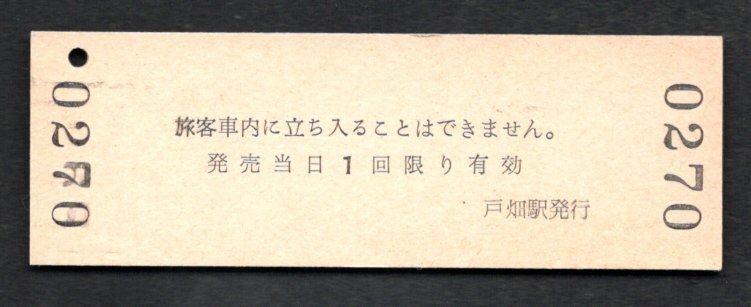 0270
旅客車内に立ち入ることはできません。
発売当日1回限り有効
戸畑駅発行
0270